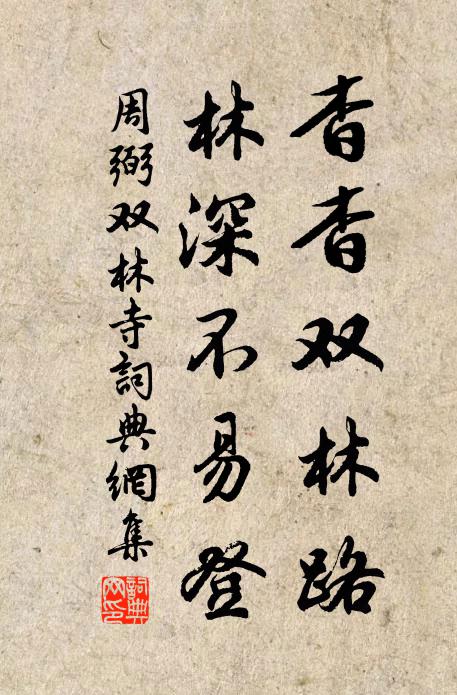 杳杳双林路
林深不易登
周弼双林寺詞典網集
詞典
网印